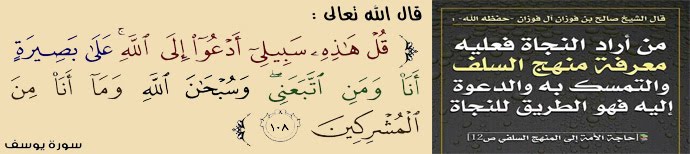 قال الله تعالى :
﴿ قُلْ هَٰذِهِۦ سَبِيلِىٓ أَدْعُوٓا۟ إِلَى ٱللَّهِ ۚ عَلَىٰ بَصِيرَةٍ
أَنَا۠ وَمَنِ ٱتَّبَعَنِى ۖ وَسُبْحَٰنَ ٱللَّهِ وَمَآ أَنَا۠ مِنَ
ٱلْمُشْرِكِينَ ١٠٨ ﴾
سورة يوسف
قال الشيخ صالح بن فوزان آل فوزان -حفظه الله- :
من أراد النجاة فعليه
معرفة منهج السلف
والتمسك به والدعوة
إليه فهو الطريق للنجاة
[حاجة الأمة إلى المنهج السلفي ص12]